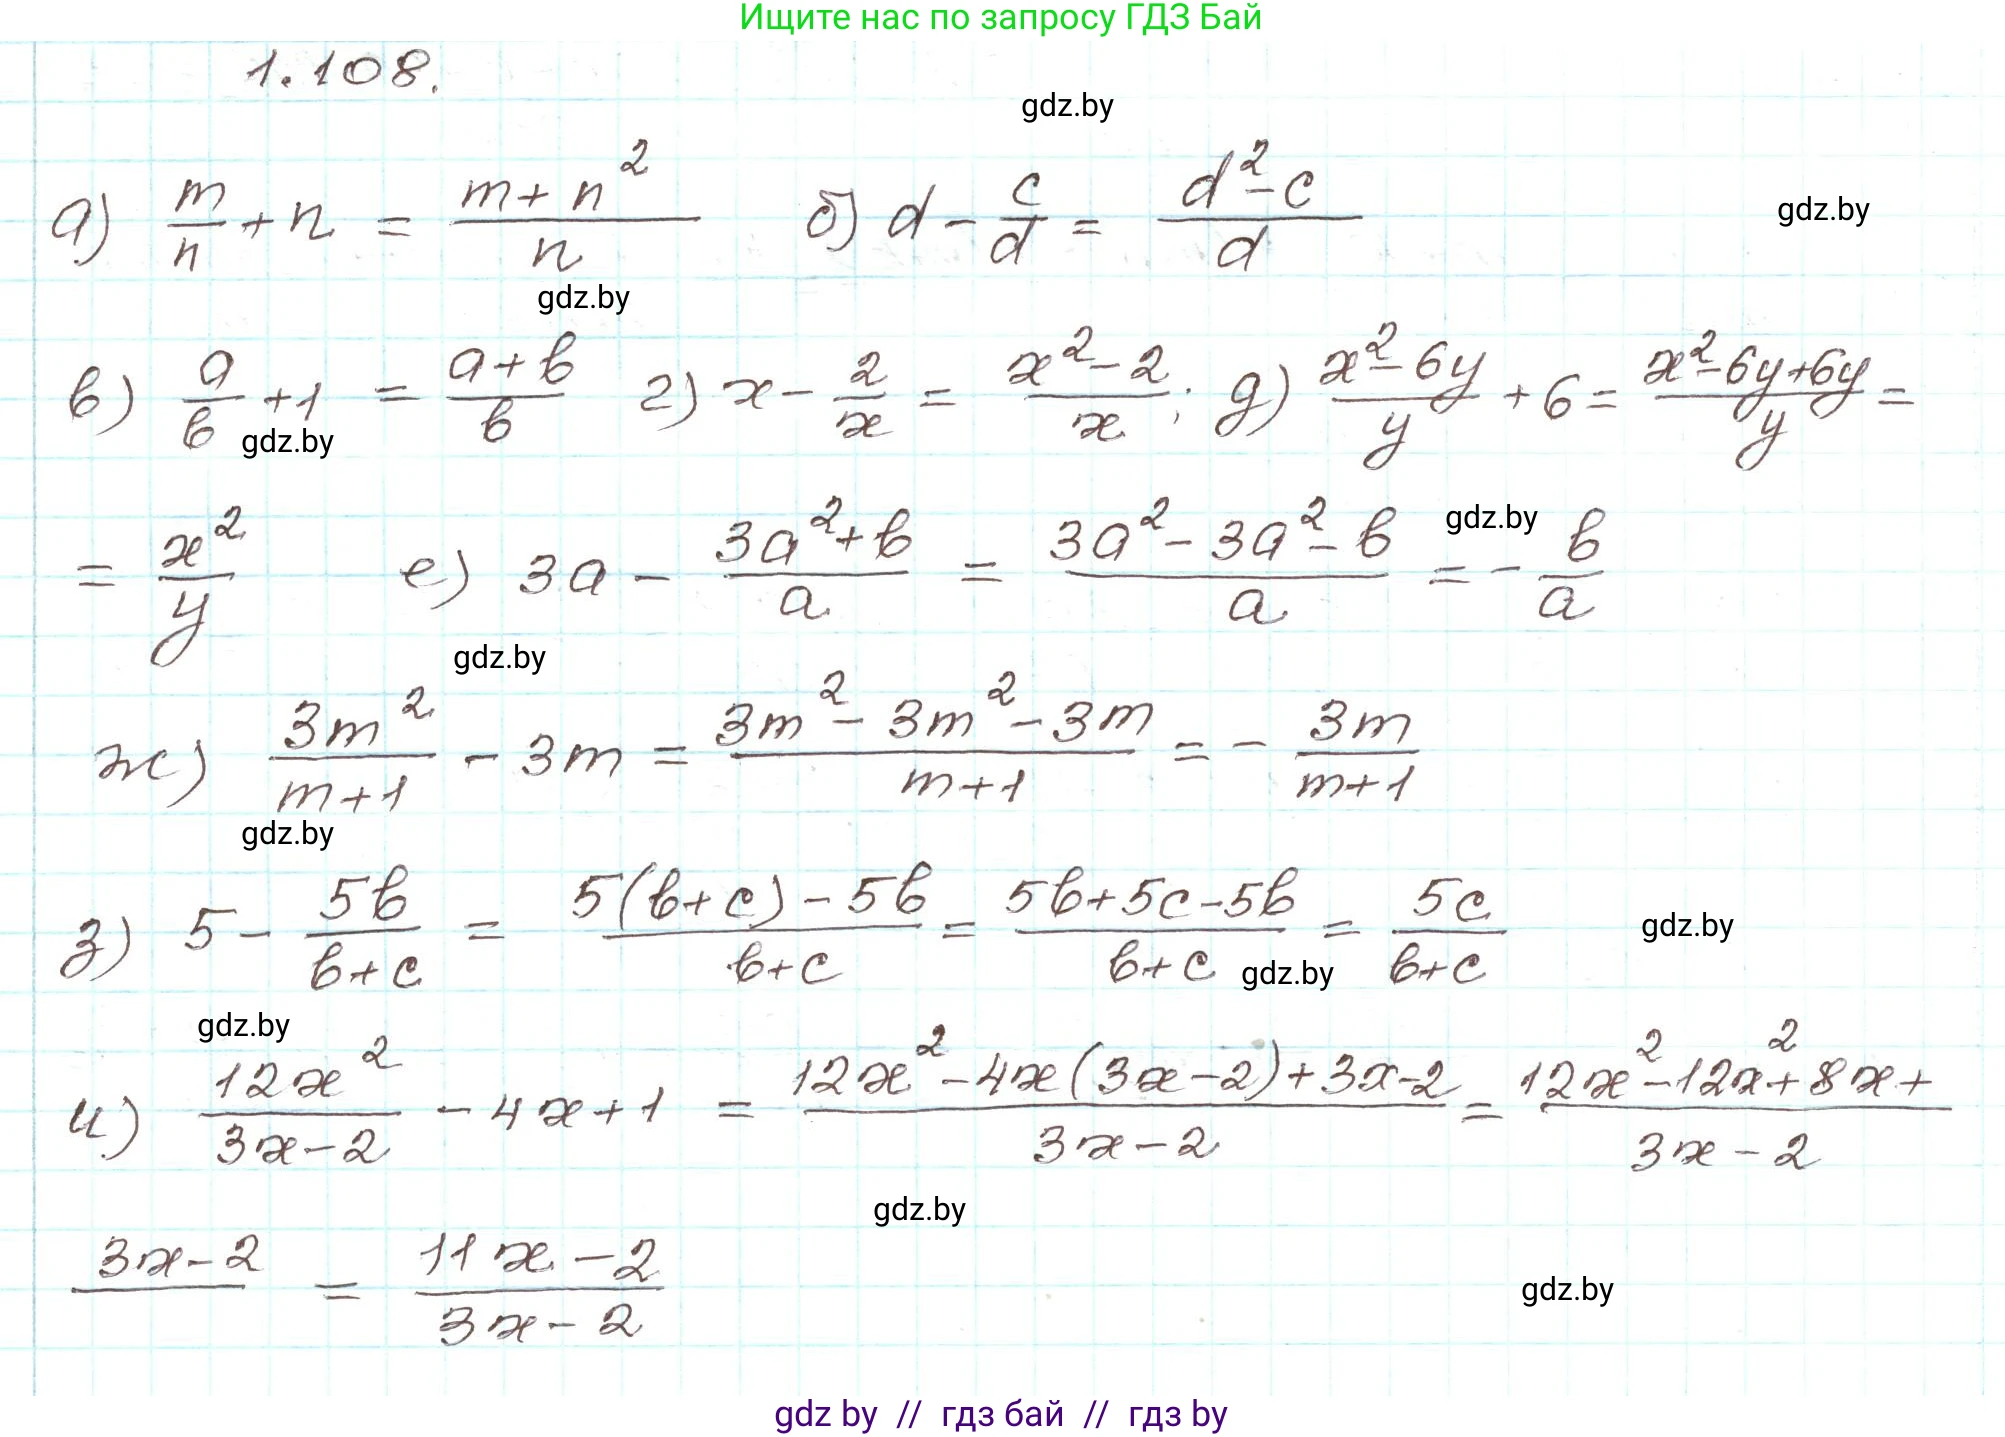 Ищите нас по запросу ГДЗ Бай
1.108.
gdz.by
а) m/n + n = (m + n²)/n б) d − c/d = (d² − c)/d
gdz.by
gdz.by
в) a/b + 1 = (a + b)/b г) x − 2/x = (x² − 2)/x; д) (x² − 6y)/y + 6 = (x² − 6y + 6y)/y =
gdz.by
= x²/y е) 3a − (3a² + b)/a = (3a² − 3a² − b)/a = − b/a
gdz.by
gdz.by
ж) 3m²/(m + 1) − 3m = (3m² − 3m² − 3m)/(m + 1) = − 3m/(m + 1)
gdz.by
з) 5 − 5b/(b + c) = (5(b + c) − 5b)/(b + c) = (5b + 5c − 5b)/(b + c) = 5c/(b + c)
gdz.by
gdz.by
gdz.by
и) 12x²/(3x − 2) − 4x + 1 = (12x² − 4x(3x − 2) + 3x − 2)/(3x − 2) = (12x² − 12x² + 8x +)/(3x − 2)
gdz.by
3x − 2 = (11x − 2)/(3x − 2)
gdz.by
gdz by // гдз бай // гдз by